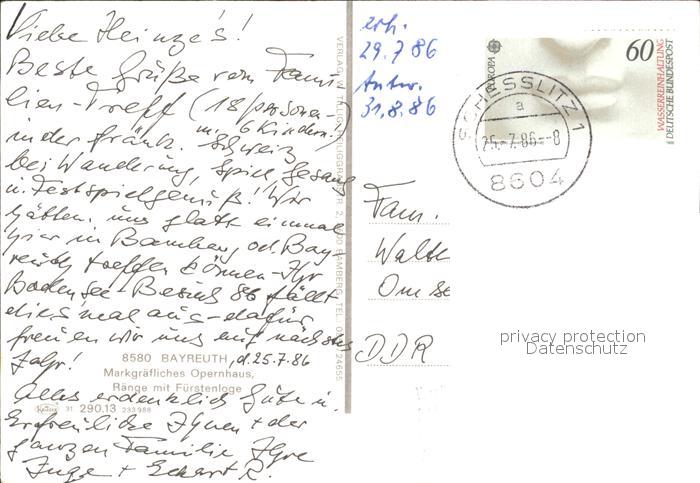 Liebe Heinze's!
Beste Grüße vom Fami-
lien-Treff (18 Personen
m. 6 Kindern!)
in der Fränk. Schweiz
bei Wanderung, Spiel, Gesang
u. Festspielgenuß! Wir
hätten uns glatt einmal
hier in Bamberg od. Bay-
reuth treffen können - Ihr
Bodensee-Besuch 86 fällt
dies'mal aus - dafür
freuen wir uns auf nächstes
Jahr!
8580 BAYREUTH, d. 25.7.86
Markgräfliches Opernhaus,
Ränge mit Fürstenloge
Krüger 31 290.13 233 988
Alles erdenklich Gute u.
Erfreuliche Ihnen + der
ganzen Familie Ihre
Inge + Eckart R.
VERLAG W. TILLIG 2, BAMBERG, TEL. 24655
erh.
29.7 86
Antw.
31.8.86
EUROPA
60
WASSERREINHALTUNG
DEUTSCHE BUNDESPOST
SCHESSLITZ 1
a
25.-7.86.-8
8604
Fam.
Walt
Om
DDR
privacy protection
Datenschutz